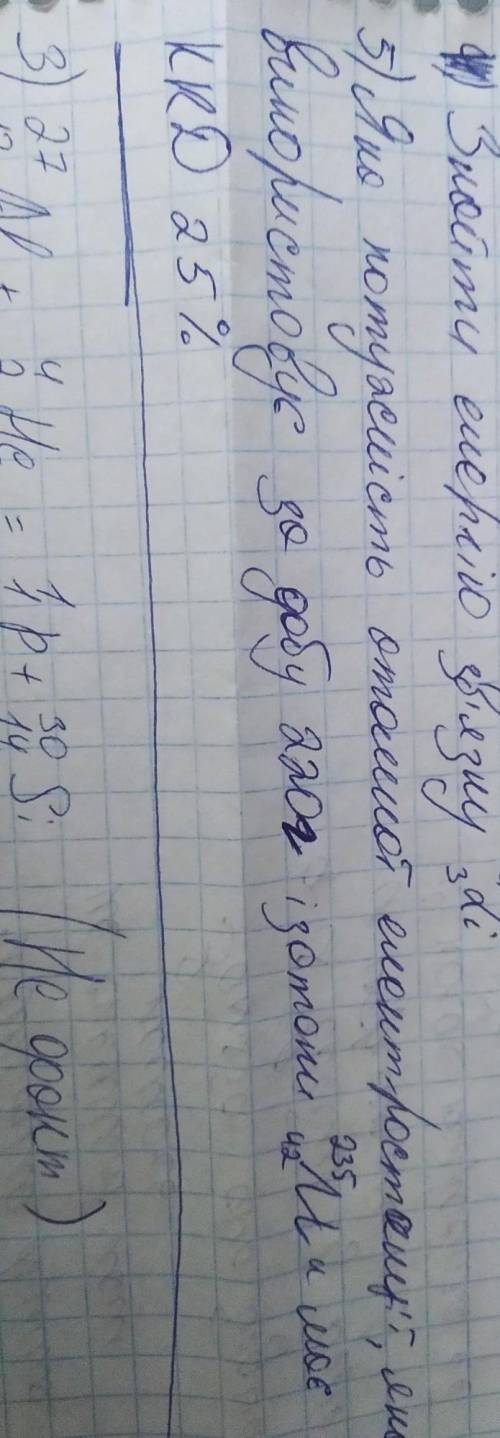 4) Знайти енергію зв'язку ₃Li
5) Яка потужність атомної електростанції, яка
використовує за добу 220г ізотопи ²³⁵₉₂U и має
ККД 25%
3) ²⁷₁₃Al + ⁴₂He = ¹₁p + ³⁰₁₄Si (Не факт)